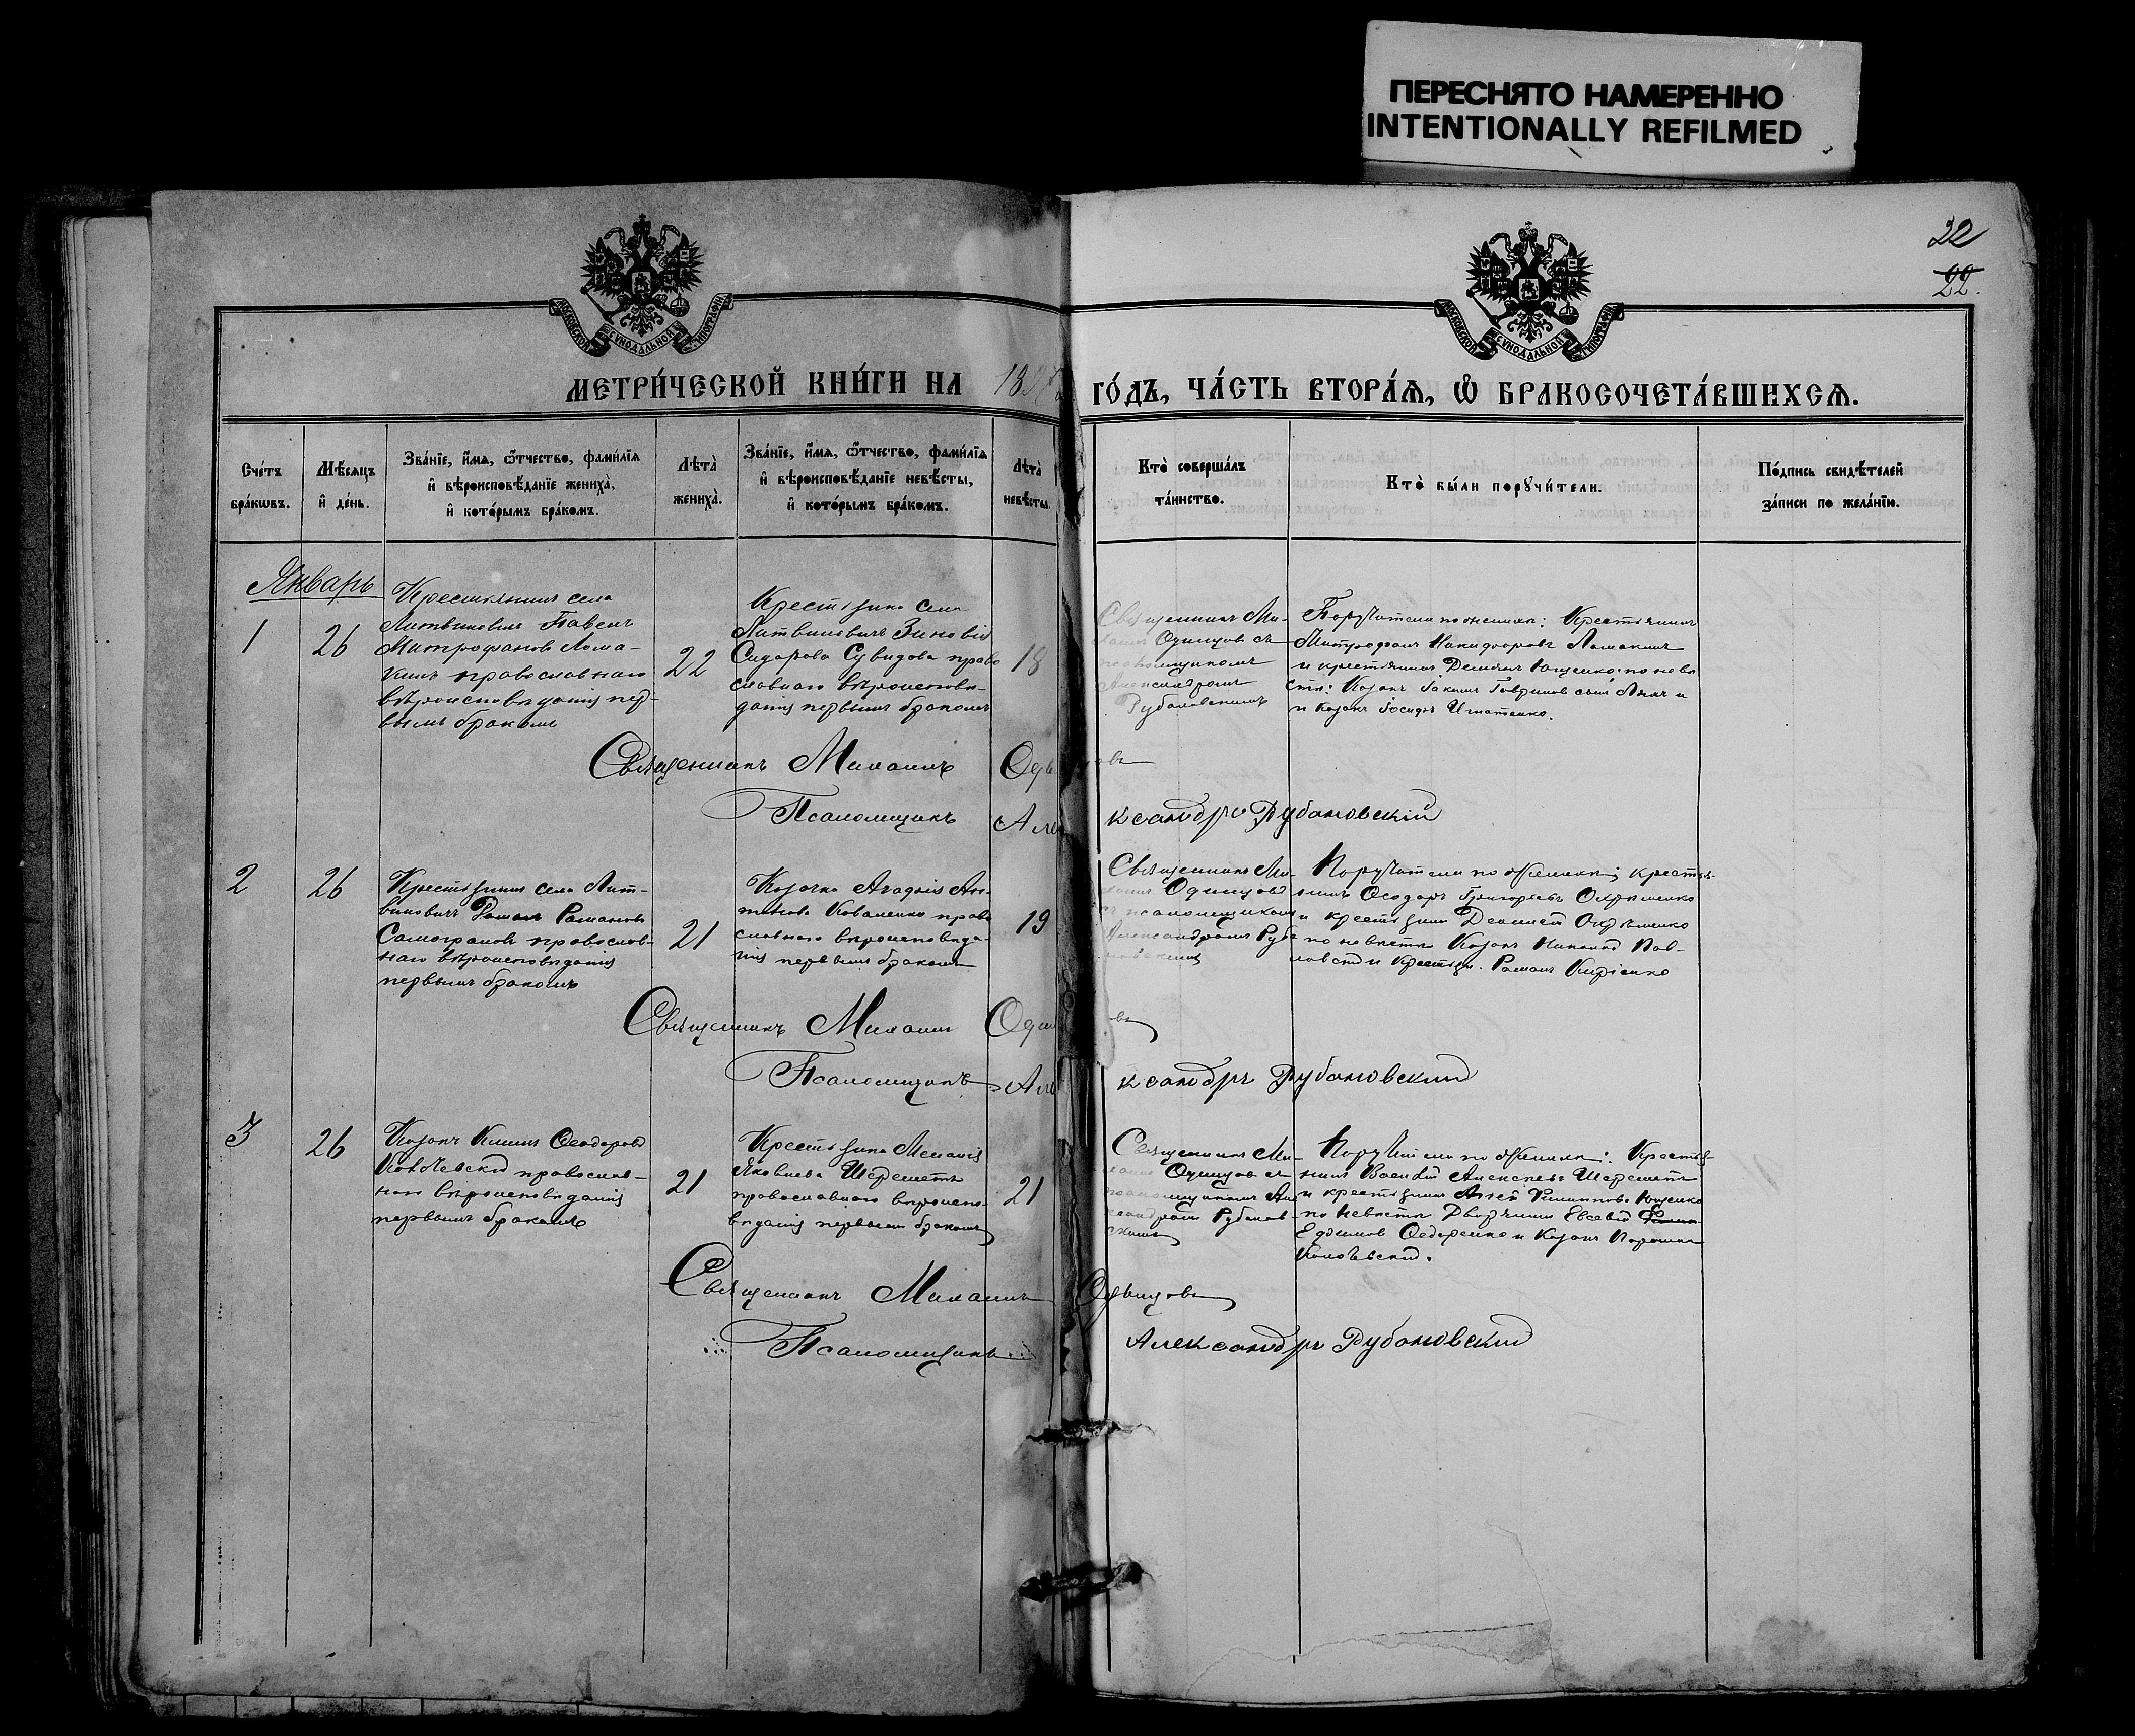 ПЕРЕСНЯТО НАМЕРЕННО
INTENTIONALLY REFILMED
22
22.
МОСКОВСКОЙ СУНОДАЛЬНОЙ ТИПОГРАФІИ
МОСКОВСКОЙ СУНОДАЛЬНОЙ ТИПОГРАФІИ
МЕТРИ́ЧЕСКОЙ КНИ́ГИ НА 18
ГО́ДЪ, ЧА́СТЬ ВТОРА́Ѧ, Ѽ БРАКОСОЧЕТА́ВШИХСѦ.
Сче́тъ бра́кѡвъ.
Мѣ́сѧцъ и҆ де́нь.
Зва́нїе, и҆́мѧ, ѻ҆́тчество, фами́лїѧ
и҆ вѣроисповѣ́данїе жениха̀,
и҆ кото́рымъ бра́комъ.
Лѣта̀ жениха̀.
Зва́нїе, и҆́мѧ, ѻ҆́тчество, фами́лїѧ
и҆ вѣроисповѣ́данїе невѣ́сты,
и҆ кото́рымъ бра́комъ.
Лѣта̀ невѣ́сты.
Кто̀ соверша́лъ
та́инство.
Кто̀ бы́ли порꙋчи́тели.
По́дпись свидѣ́телей
за́писи по жела́нїю.
Январь
1
26
Крестьянинъ села
Литвиновичъ Павелъ
Митрофановъ Лома-
кинъ православнаго
вѣроисповѣданія пер-
вымъ бракомъ
22
Крестьянка села
Литвиновичъ Зиновія
Сидорова Сувидова право
славнаго вѣроисповѣ-
данія первымъ бракомъ
18
Священникъ Ми-
Одинцовъ съ
псаломщикомъ
Александромъ
Рубановскимъ
Поручители по женихѣ: Крестьянинъ
Митрофанъ Никифоровъ Ломакинъ
и крестьянинъ Ющенко; по невѣ
стѣ: Козакъ Іакимъ Гавриловъ
и Козакъ Іосифъ Игнатенко.
Священникъ Михаилъ Одинцовъ
Псаломщикъ Александръ Рубановскій
2
26
Крестьянинъ села Лит-
виновичъ Романъ Романовъ
православ-
наго вѣроисповѣданія
первымъ бракомъ
21
Козачка Агафія Ан-
тонова Коваленко право
славнаго вѣроисповѣда-
нія первымъ бракомъ
19
Священникъ Ми-
хаилъ Одинцовъ
съ псаломщикомъ
Александромъ Руба
новскимъ
Поручители по женихѣ: крестья-
нинъ Ѳеодоръ Григорьевъ
и крестьянинъ
по невѣстѣ Козакъ Пав-
ловскій и Крестьян. Романъ Кирієнко
Священникъ Михаилъ Одинцовъ
Псаломщикъ Александръ Рубановскій
3
26
Козакъ Ѳеодоровъ
православ-
наго вѣроисповѣданія
первымъ бракомъ
21
Крестьянка Меланія
Яковлева Шереметъ
православнаго вѣроиспо-
вѣданія первымъ бракомъ
21
Священникъ Ми-
хаилъ Одинцовъ съ
псаломщикомъ Але
ксандромъ Рубанов-
скимъ
Поручители по женихѣ: Крестья-
нинъ Василій Алексѣевъ Шереметъ
и крестьянинъ Филипповъ Ющенко
по невѣстѣ Дворянинъ Евсевій
Ефимовъ Федоренко и Козакъ
Священникъ Михаилъ Одинцовъ
Псаломщикъ Александръ Рубановскій